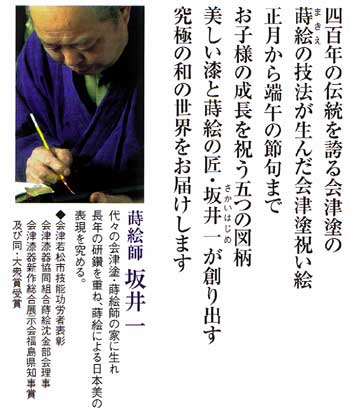 四百年の伝統を誇る会津塗の
蒔絵の技法が生んだ会津塗祝い絵
正月から端午の節句まで
お子様の成長を祝う五つの図柄
美しい漆と蒔絵の匠・坂井一が創り出す
究極の和の世界をお届けします
蒔絵師 坂井一
代々の会津塗・蒔絵師の家に生れ
長年の研鑽を重ね、蒔絵による日本美の
表現を究める。
◆会津若松市技能功労者表彰
会津漆器協同組合蒔絵沈金部会理事
会津漆器新作総合展示会福島県知事賞
及び同・大衆賞受賞
まきえ
さかいはじめ